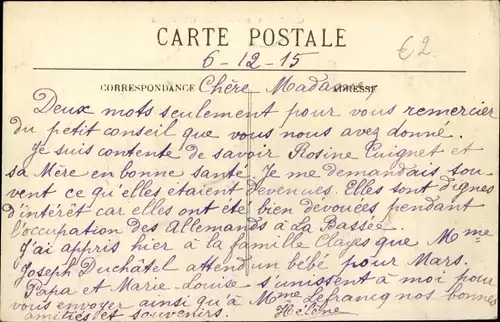 CARTE POSTALE
6-12-15
€2
CORRESPONDANCE
ADRESSE
Chère Madame,
Deux mots seulement pour vous remercier
du petit conseil que vous nous avez donné.
Je suis contente de savoir Rosine Cuignet et
sa Mère en bonne santé. Je me demandais sou-
vent ce qu'elles étaient devenues. Elles sont dignes
d'intérêt car elles ont été bien devouées pendant
l'occupation des Allemands à La Bassée.
J'ai appris hier à la famille Clayes que Mme
Joseph Duchâtel attend un bébé pour Mars.
Papa et Marie-Louise s'unissent à moi pour
vous envoyer ainsi qu'à Mme Lefrancq nos bonnes
amitiés et souvenirs.
Hélène